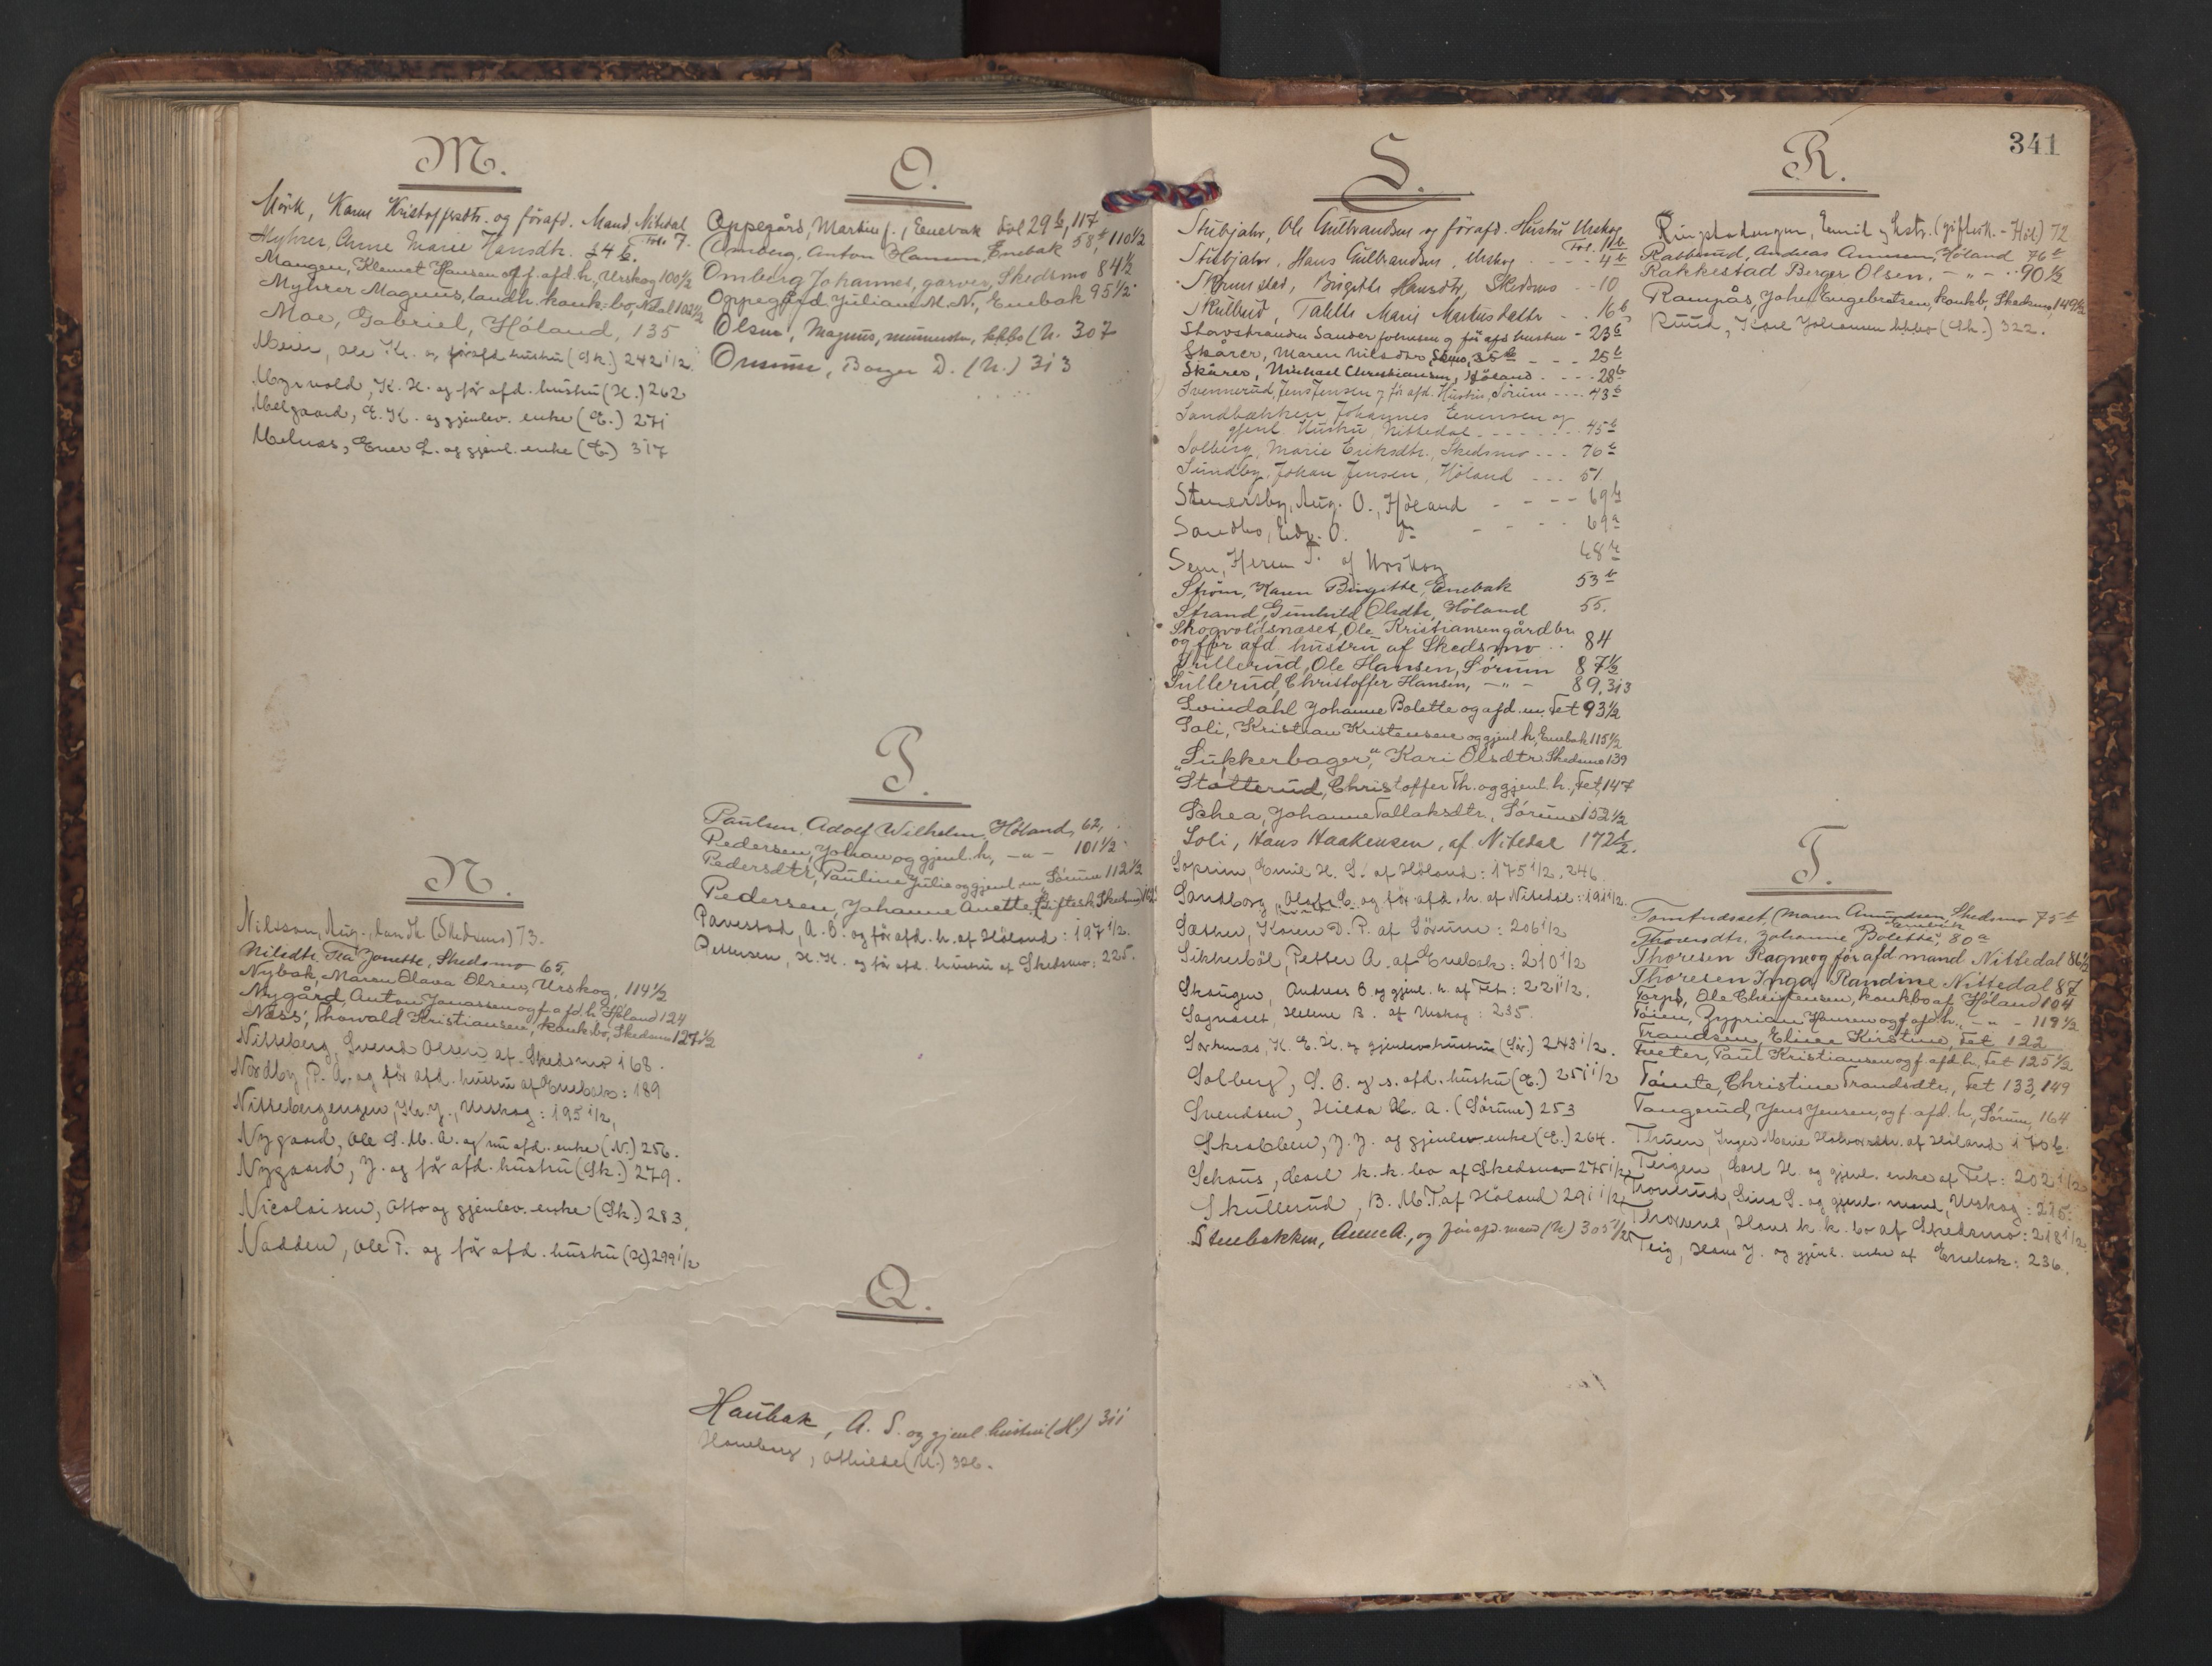 M.
Mörk, Karen Kristoffersdtr. og förafd. Mand, Nitedal
Fol. 7.
Myhrer, Anne Marie Hansdtr. 34 b.
Mangen, Klemet Hansen og f. afd. h., Urskog 100 1/2
Myhrer Magnus, landh. konk.bo, N.dal 102 1/2
Moe, Gabriel, Höland, 135
Meier, Ole Kr. og förafd hustru (Sk.) 242 1/2
Myrvold, K. H. og för afd. hustru (H.) 262
Melgaard, E. K. og gjenlev. enke (E.) 271
Melnæs, Even L. og gjenl. enke (E.) 317
N.
Nilsson, Aug., (Skedsmo) 73.
Nilsdtr. Tea Jonette, Skedsmo 65.
Nybak, Maren Olava Olsen, Urskog, 114 1/2
Nygård, Anton Jonassen og f. afd. h. Höland 124
Næss, Thorvald Kristiansen, konk.bo, Skedsmo 127 1/2
Nitteberg, Svend Olsen af Skedsmo 168.
Nordby, P. A. og för afd. hustru af Enebak: 189
Nittebergengen, Kr. J., Urskog: 195 1/2,
Nygaard, Ole S. M. A. og nu afd. enke (N.) 256.
Nygaard, J. ogför afd. hustru (Sk.) 279.
Nicolaisen, Otto og gjenlev. enke (Sk.) 283.
Nadden, Ole P. og för afd. hustru (H.) 299 1/2
O.
Oppegård, Martin J., Enebak Fol 29 b, 117,
Omberg, Anton Hansen, Enebak 58 b, 110 1/2
Omberg Johannes, garver, Skedsmo 84 1/2
Oppegård, Juliane M. N., Enebak 95 1/2
Olsen, Magnus, murmester, kkbo (N. 307
Onsum, Borger D. (N.) 313
P.
Paulsen, Adolf Wilhelm, Höland, 62,
Pedersen, Johan og gjenl. h, — " — 101 1/2
Pedersdtr, Pauline Julie og gjenl. m. Sörum 112 1/2
Pedersen, Johanne Anette (Giftesk. Skedsmo)
Pavestad, A. O. og för afd. h. af Höland: 197 1/2.
Pettersen, H. K. og för afd. hustru af Skedsmo: 225.
Q.
Haubak, A. S. og gjenl. hustru (H.) 311
Haneborg, Othilde (U.) 326.
S.
Stubjahr, Ole Gulbrandsen og förafd. Hustru Urskog
Fol. 11 b
Stubjahr, Hans Gulbrandsen, Urskog - - - - 4 b
Birgitte Hansdtr, Skedsmo - - 10
Skulbrud, Maria Martinsdatter - . 16 b
Stavstranden Sander Johnsen og för afd hustru - 23 b
Skårer, Maren Nilsdtr, - - - 25 b
Skårer, Michael Christiansen, Höland. - - - 28 b
Svennerud, Jens Jensen og för afd. Hustru, Sörum - - - - 43 b
Sandbækken Johannes Evensen og
gjenl Hustru, Nittedal - - - - - - 45 b
Solberg, Marie Eriksdtr., Skedsmo - - - 76 b
Sundby, Johan Jensen, Höland - - - 51
Stenersby, Aug. O., Höland - - - - 69 b
Sandbo, Edv. O. - - - - 69 a
Sem, Herm T. af Urskog 68 b
Ström, Karen Birgitte, Enebak 53 b
Strand, Gunhild Olsdtr, Höland 55.
Skogvoldsnæset, Ole Kristiansen gårdbr.
og för afd hustru af Skedsmo .. 84
Sullerud, Ole Hansen, Sörum 87 1/2
Sullerud, Christoffer Hansen, — " — 89, 313
Svindahl Johanne Bolette og afd. m. Fet 93 1/2
Soli, Kristian Kristensen og gjenl. h, Enebak 115 1/2
"Sukkerbager," Kari Olsdtr Skedsmo 139
Støtterud, Christoffer Th. og gjenl. h., Fet, 147
Schea, Johanne Tallaksdtr., Sörum 152 1/2
Soli, Hans Haakensen, af Nitedal 172 1/2.
Soprim, Emil H. S. af Höland: 175 1/2, 246.
Sandborg, Olaf C. og för afd. h. af Nitedal: 191 1/2.
Sæther, Karen D. P. af Sörum: 206 1/2
Sikkerböl, Petter A. af Enebak: 210 1/2
Skaugen, Andreas O. og gjenl. h. af Fet: 221 1/2.
Sagnæset, Helene B. af Urskog: 235.
Sörknæs, K. E. H. og gjenlev. hustru (Sör.) 243 1/2.
Solberg, S. O. og f. afd. hustru (E.) 251 1/2
Svendsen, Hilda H. A. (Sörum) 253
Skrabben, J. J. og gjenlev enke (E.) 264.
Schøus, Carl k. k. bo af Skedsmo 275 1/2
Skullerud, B. M. T. af Höland 291 1/2
Stenbakken, Anne A., og förafd. mand (N) 305 1/2
R.
341
Ringstadengen, Emil og hstr. (giftesk. - Höl) 72
Rabbrud, Andreas Amunsen, Höland 76 b
Rakkestad Berger Olsen. — " — 90 1/2
Rampås, Johan Engebretsen, konkb, Skedsmo, 149 1/2
Ruud, Karl Johansen kkbo (Sk.) 322.
T.
Tomtndset, Maren Amundsen, Skedsmo 75 b
Thorersdtr. Johanne Bolette, Enebak 80 a
Thoresen Ragne og för afd mand Nittedal 86 1/2
Thoresen Inga Randine Nittedal 87
Torps, Ole Christensen, konkbo af Höland 104
Töien, Zyprian Hansen og f. afd. h., — " — 118 1/2
Trandsen, Elise Kirstine, Fet 122
Tveter, Paul Kristiansen og f. afd h, Fet 125 1/2
Tömte, Christine Trandsdtr, Fet 133, 149
Tangerud, Jens Jensen, og f. afd. h, Sörum, 164
Thuen, Inger Marie Halvorsdtr. af Höland 170 b.
Teigen, Carl H. og gjenl. enke af Fet: 202 1/2
Tronrud, Gina S. og gjenl. mand, Urskog: 215.
Hans k. k. bo af Skedsmo: 218 1/2.
Teig, Hans J. og gjenl. enke af Enebak: 236.